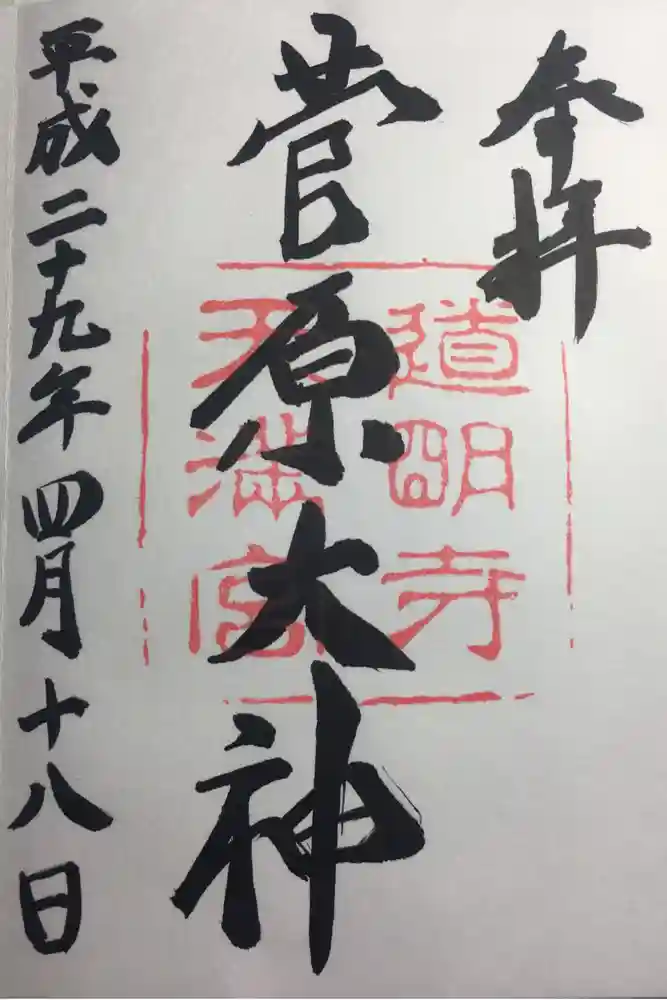 奉拝
菅原大神
道明寺
天満宮
平成二十九年四月十八日